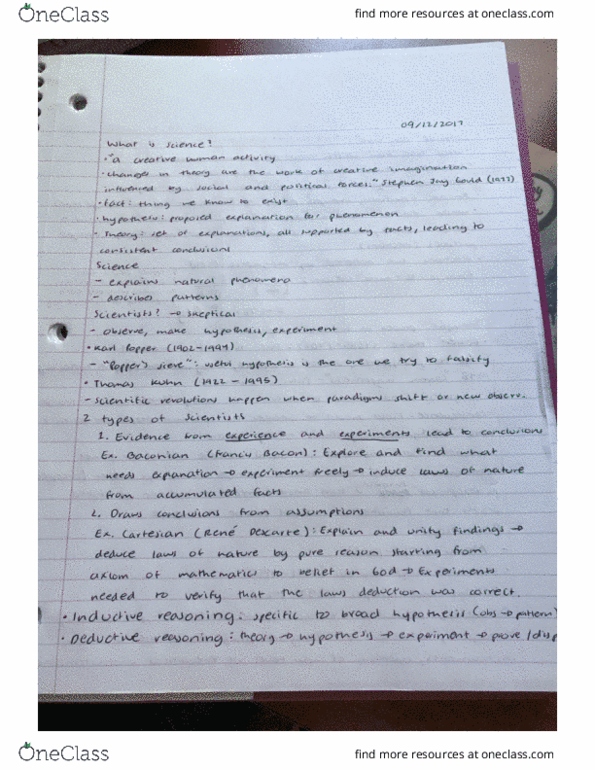 OneClass
find more resources at oneclass.com
09/12/2017
What is science?
• "a creative human activity
• changes in theory are the work of creative imagination
influenced by social and political forces." Stephen Jay Gould (1977)
• fact: thing we know to exist
• hypothesis: proposed explanation for phenomenon
• Theory: set of explanations, all supported by facts, leading to
consistent conclusions
Science
- explains natural phenomena
- describes patterns
Scientists? → skeptical
- observe, make hypothesis, experiment
• Karl Popper (1902-1994)
- "Popper's sieve": useful hypothesis is the one we try to falsify
• Thomas Kuhn (1922 - 1995)
- Scientific revolutions happen when paradigms shift or new observ.
2 types of scientists
1. Evidence from experience and experiments lead to conclusions
Ex. Baconian (Francis Bacon): Explore and find what
needs expanation → experiment freely → induce laws of nature
from accumulated facts
2. Draws conclusions from assumptions
Ex. Cartesian (René Descarte): Explain and unify findings →
deduce laws of nature by pure reason starting from
axiom of mathematics to belief in God → Experiments
needed to verify that the laws deduction was correct.
• Inductive reasoning: specific to broad hypothesis (obs → pattern)
• Deductive reasoning: theory → hypothesis → experiment → prove/disp
OneClass
find more resources at oneclass.com